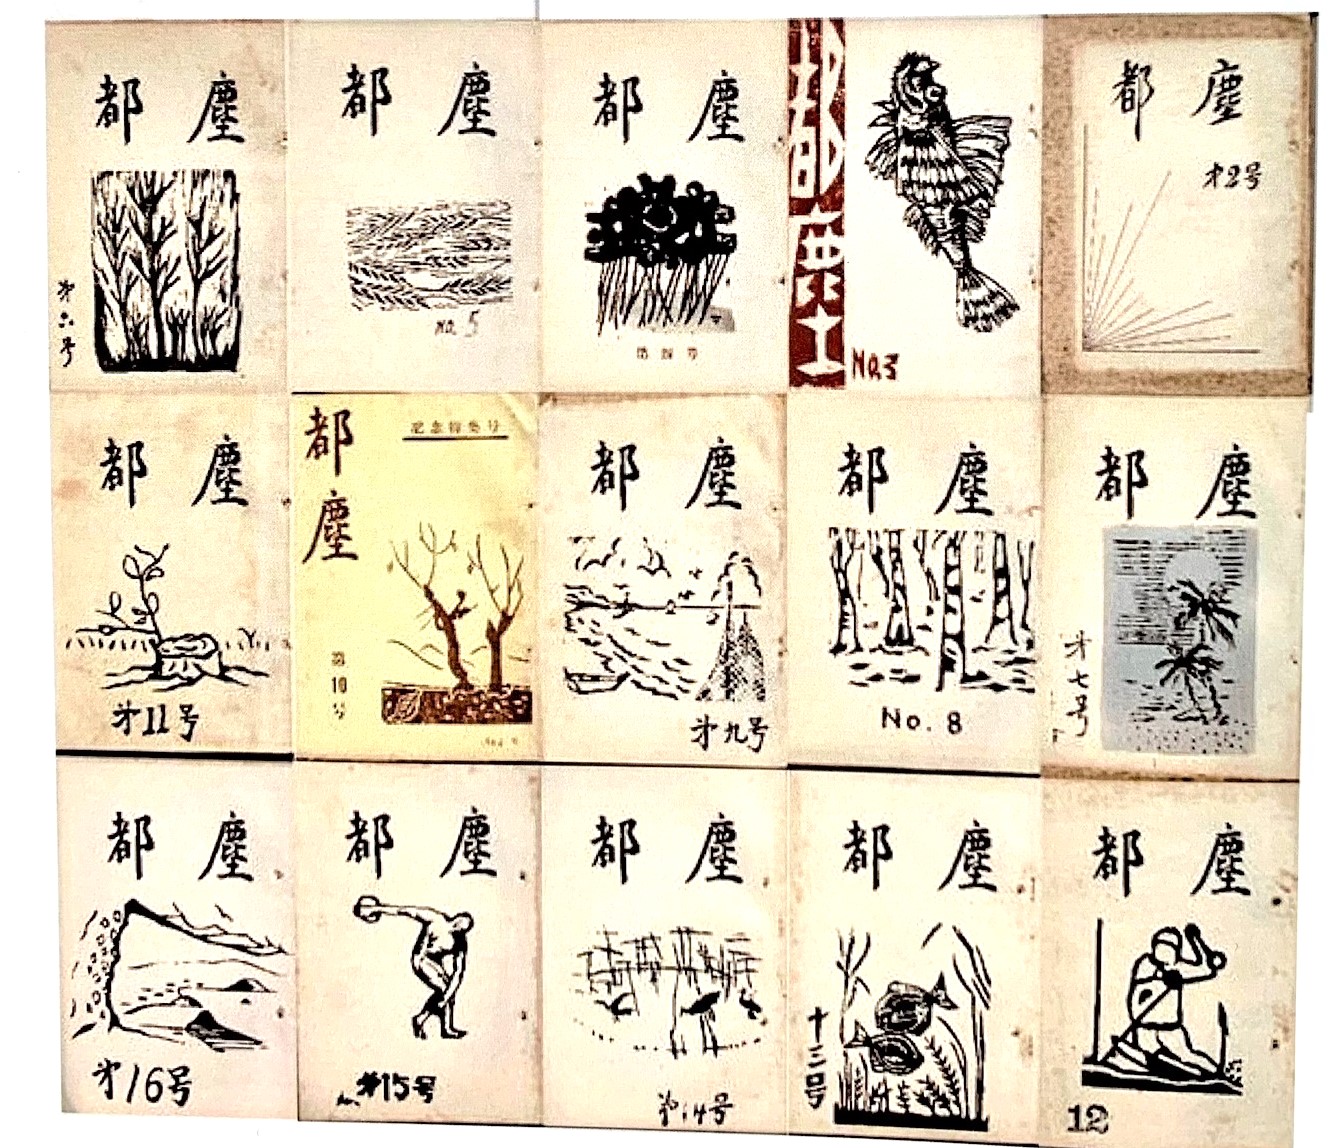 都 塵
第六号
都 塵
No. 5
都 塵
第四号
都塵
No.3
都 塵
才2号
都 塵
才11号
都塵
記念特集号
第10号
都 塵
才九号
都 塵
No. 8
都 塵
才七号
都 塵
才16号
都 塵
才15号
都 塵
才14号
都 塵
十三号
都 塵
12